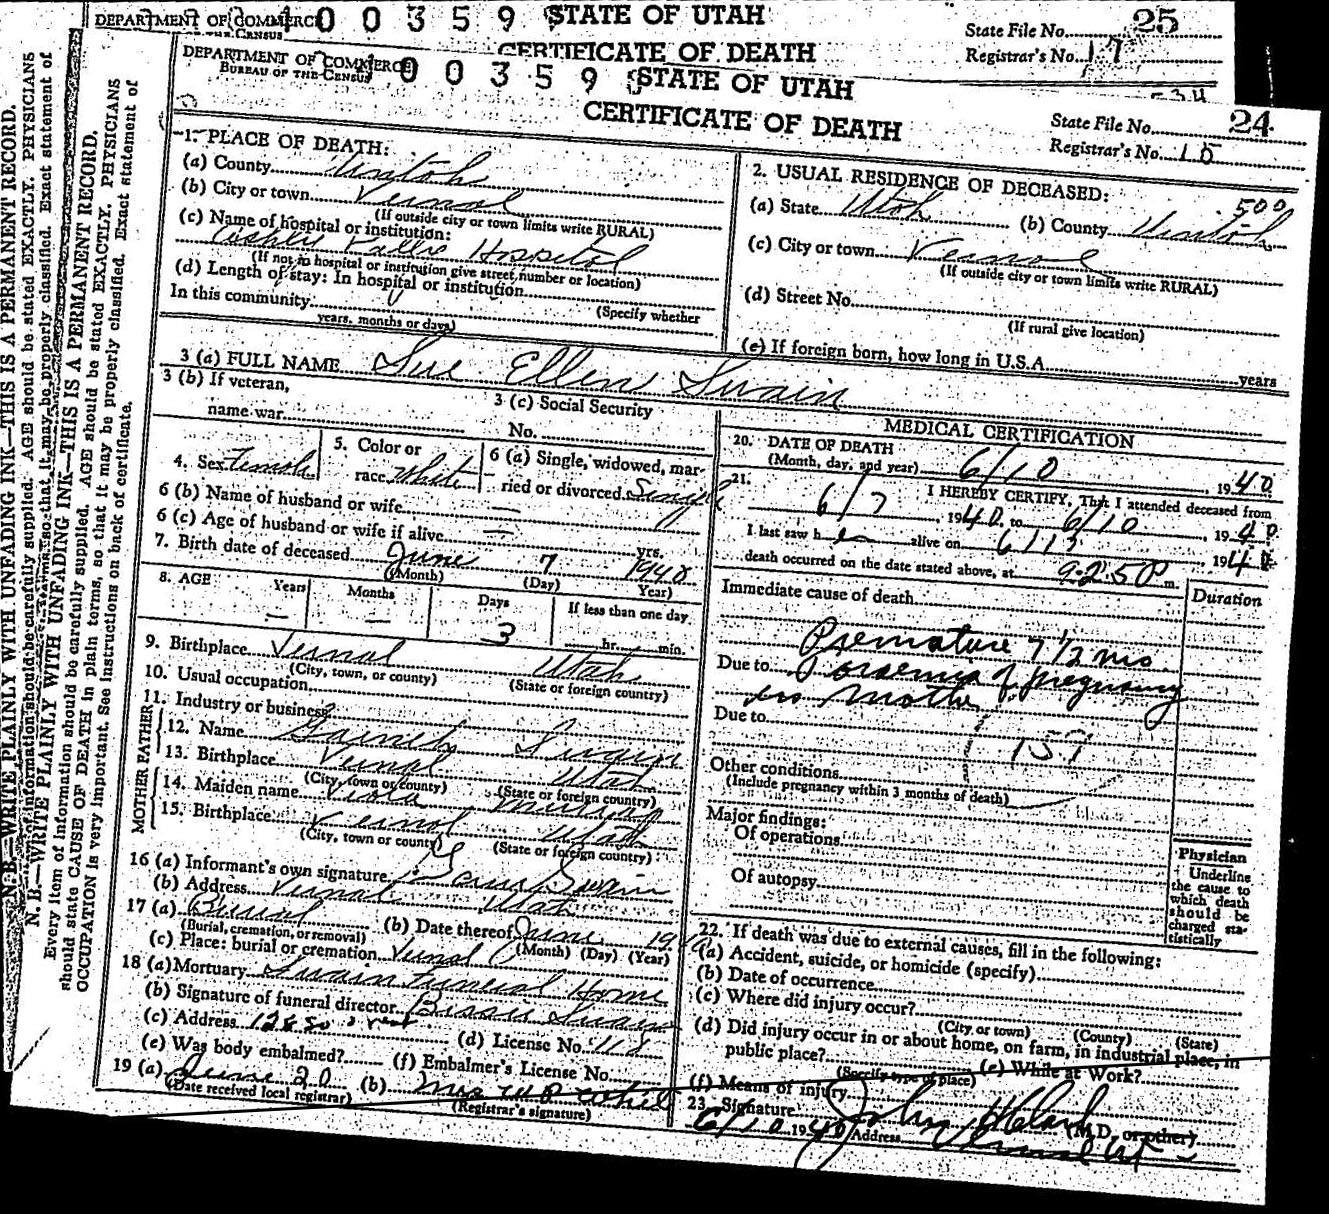 DEPARTMENT OF COMMERCE
00359
STATE OF UTAH
State File No. 25
CERTIFICATE OF DEATH
Registrar's No. 17
DEPARTMENT OF COMMERCE
BUREAU OF THE CENSUS
00359
STATE OF UTAH
CERTIFICATE OF DEATH
State File No. 24
Registrar's No. 15
N. B.—WRITE PLAINLY WITH UNFADING INK—THIS IS A PERMANENT RECORD.
Every item of information should be carefully supplied. AGE should be stated EXACTLY. PHYSICIANS
should state CAUSE OF DEATH in plain terms, so that it may be properly classified. Exact statement of
OCCUPATION is very important. See instructions on back of certificate.
1. PLACE OF DEATH:
(a) County Uintah
(b) City or town Vernal
(If outside city or town limits write RURAL)
(c) Name of hospital or institution:
Ashley Hospital
(If not in hospital or institution give street number or location)
(d) Length of stay: In hospital or institution
(Specify whether
In this community
years, months or days)
2. USUAL RESIDENCE OF DECEASED:
500
(a) State Utah (b) County Uintah
(c) City or town Vernal
(If outside city or town limits write RURAL)
(d) Street No.
(If rural give location)
(e) If foreign born, how long in U.S.A. years
3 (a) FULL NAME Sue Ellen Swain
3 (b) If veteran,
name war
3 (c) Social Security
No.
4. Sex Female
5. Color or
race White
6 (a) Single, widowed, mar-
ried or divorced Single
6 (b) Name of husband or wife —
6 (c) Age of husband or wife if alive — yrs.
7. Birth date of deceased June 7 1940
(Month) (Day) Year)
8. AGE Years Months Days If less than one day
— — 3 hr. min.
9. Birthplace Vernal Utah
(City, town, or county) (State or foreign country)
10. Usual occupation
11. Industry or business
FATHER
12. Name Swain
13. Birthplace Vernal Utah
(City, town or county) (State or foreign country)
MOTHER
14. Maiden name Viola
15. Birthplace Vernal Utah
(City, town or county) (State or foreign country)
16 (a) Informant's own signature Swain
(b) Address Vernal Utah
17 (a) Burial (b) Date thereof June 19
(Burial, cremation, or removal) (Month) (Day) (Year)
(c) Place: burial or cremation Vernal
18 (a) Mortuary Swain Funeral Home
(b) Signature of funeral director Swain
(c) Address (d) License No. 118
(e) Was body embalmed? (f) Embalmer's License No.
19 (a) June 20 (b) Mrs
(Date received local registrar) (Registrar's signature)
MEDICAL CERTIFICATION
20. DATE OF DEATH
(Month, day, and year) 6/10, 1940
21. I HEREBY CERTIFY, That I attended deceased from
6/7, 1940, to 6/10, 1940
I last saw h er alive on 1940
death occurred on the date stated above, at m.
Immediate cause of death
Duration
Premature 7 1/2 mo
Due to Toxaemia of pregnancy
in mother
Due to
159
Other conditions
(Include pregnancy within 3 months of death)
Major findings:
Of operations
Of autopsy
Physician
Underline
the cause to
which death
should be
charged sta-
tistically
22. If death was due to external causes, fill in the following:
(a) Accident, suicide, or homicide (specify)
(b) Date of occurrence
(c) Where did injury occur?
(City or town) (County) (State)
(d) Did injury occur in or about home, on farm, in industrial place, in
public place? (e) While at Work?
(Specify type of place)
(f) Means of injury
23. Signature John (M.D. or other)
6/10 1940 Address Vernal Ut